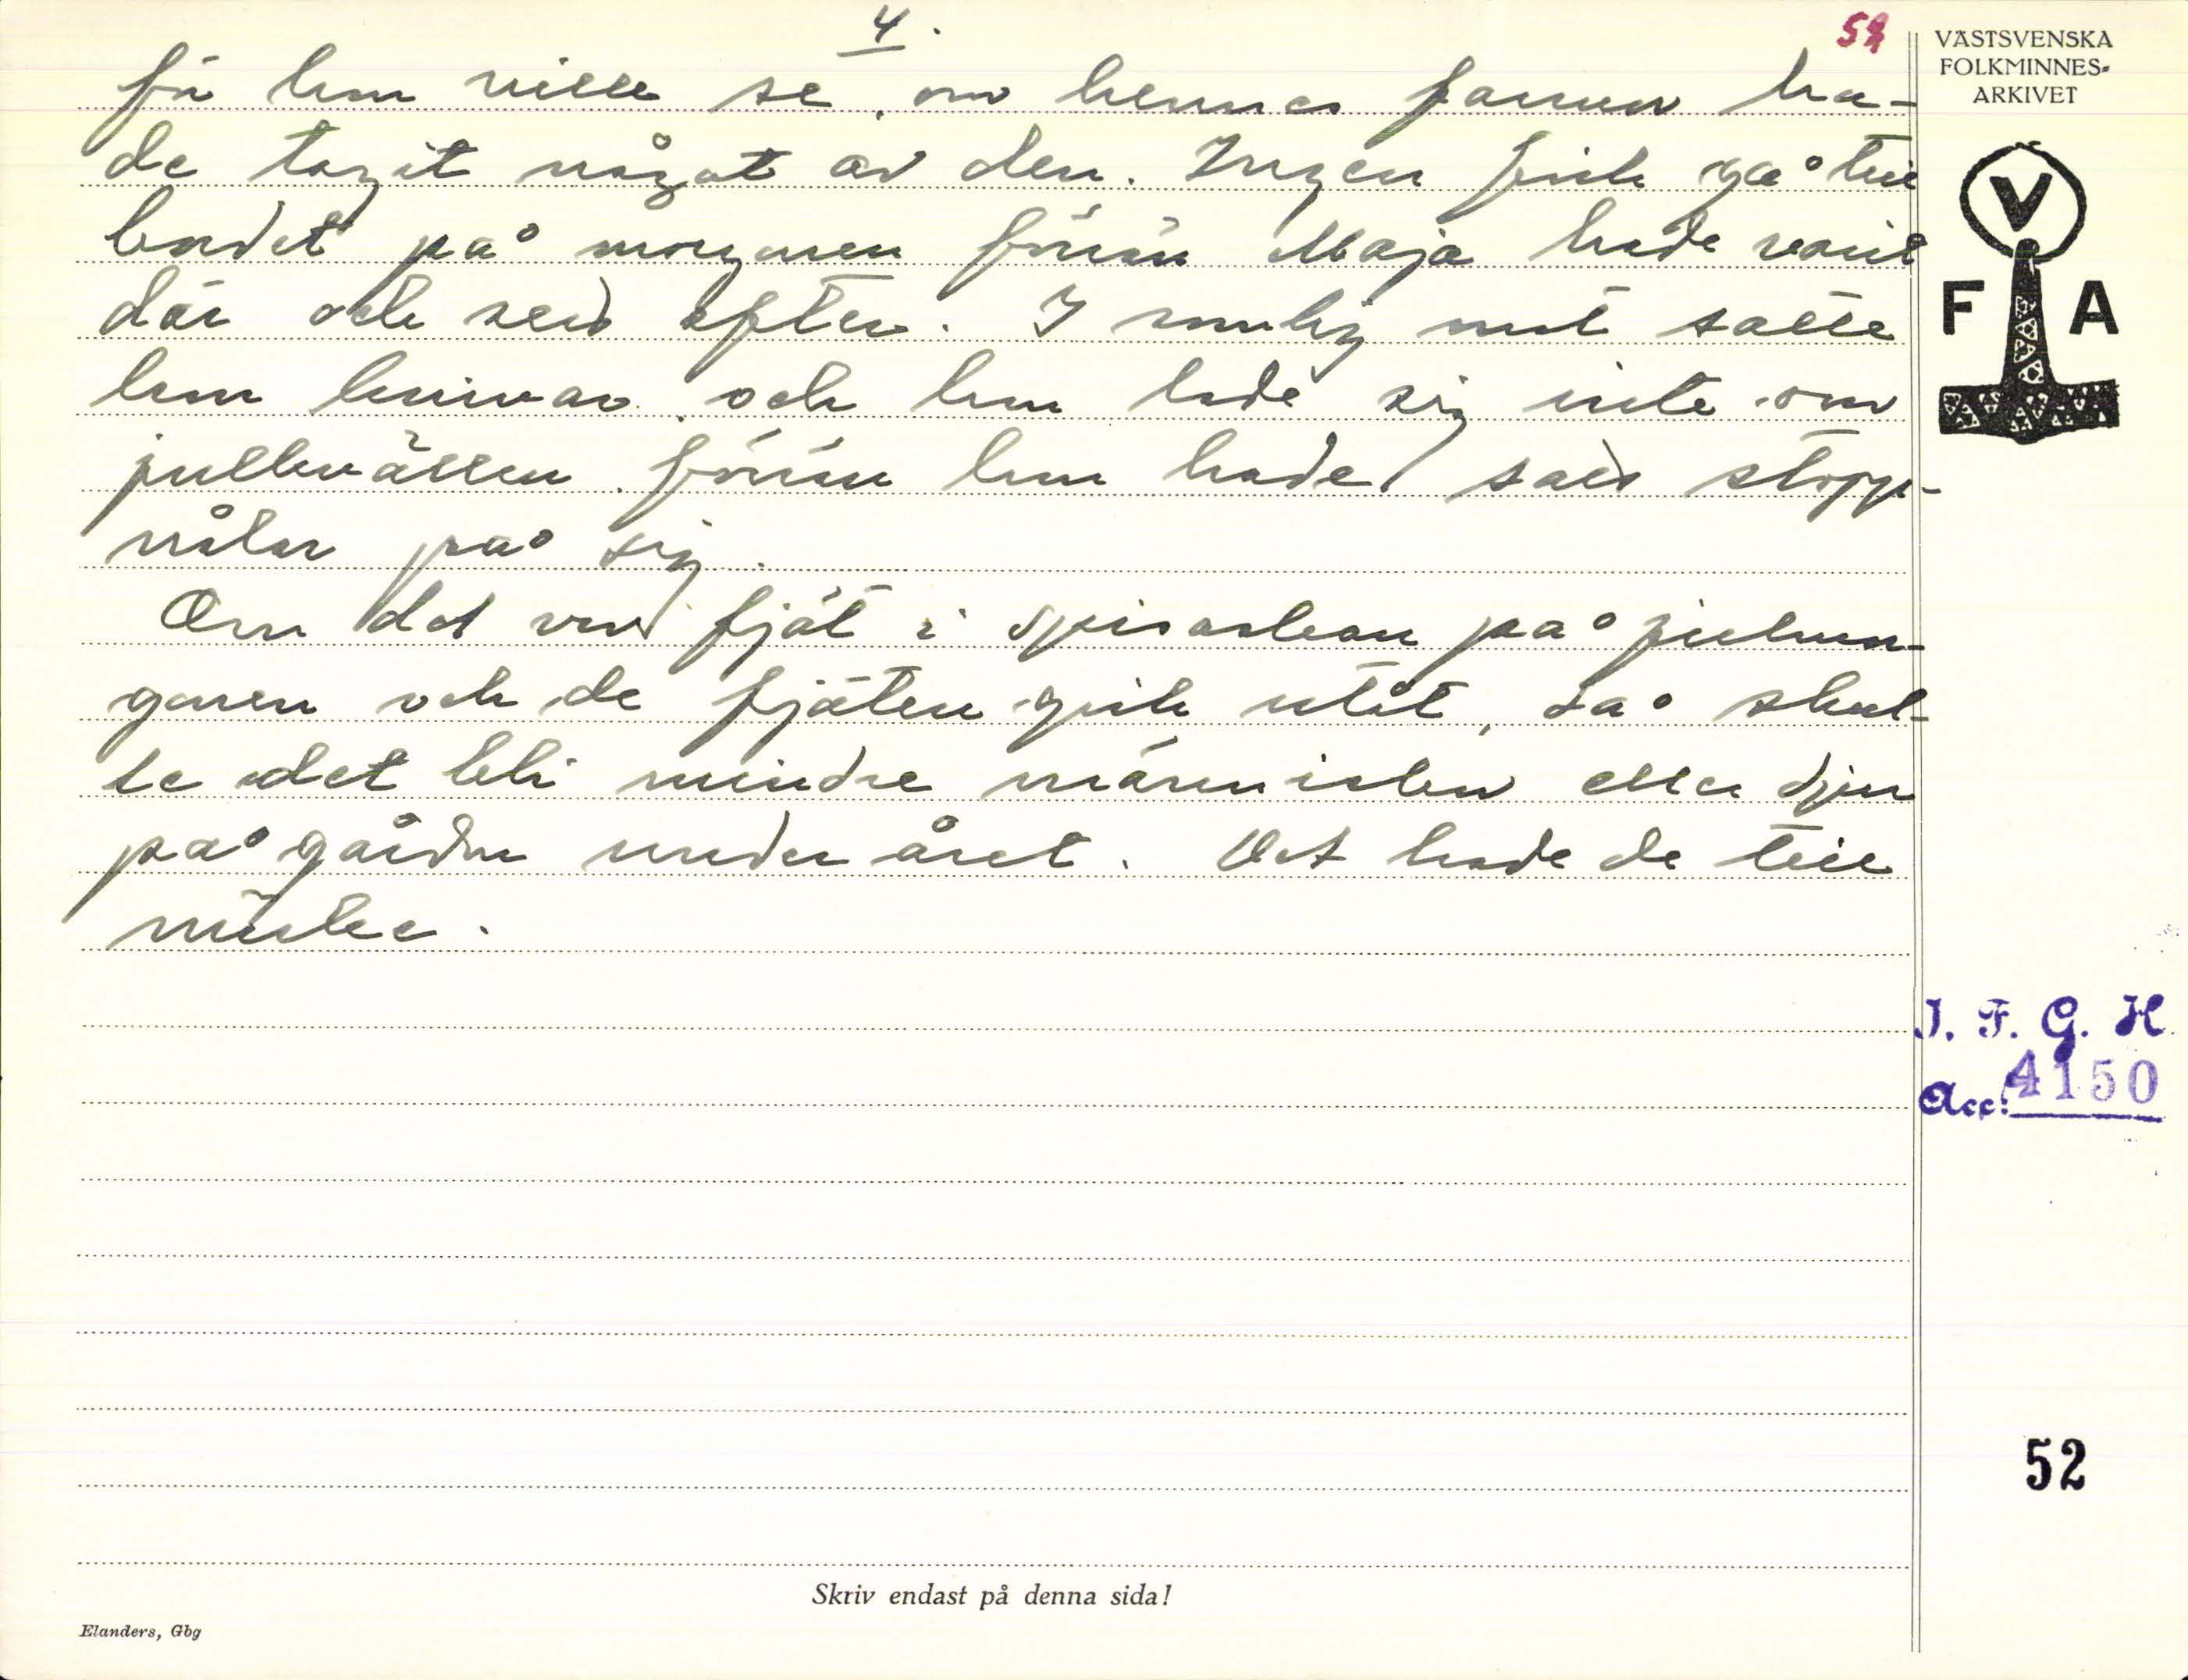 4.
52
VÄSTSVENSKA
FOLKMINNES-
ARKIVET
för hon ville se, om hennes farmor ha-
de tagit något av den. Ingen fick gå till
bordet på morgonen förrän Maja hade varit
där och sett efter. I mat satte
hon knivar och hon lade sig inte om
julkvällen förrän hon hade satt stopp-
nålar på sig.
Om det var fjät i spisaskan på julmor-
gonen och de fjäten gick utåt, då skul-
le det bli mindre människor eller djur
på gården under året. Det hade de till
märke.
V
F A
I. F. G. H.
Acc: 4150
52
Skriv endast på denna sida!
Elanders, Gbg